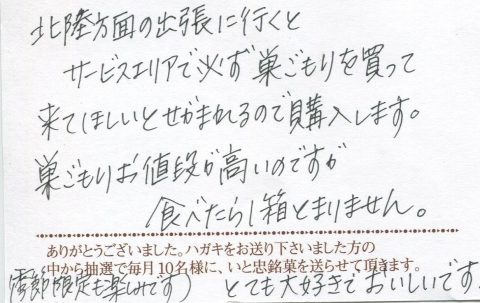 北陸方面の出張に行くと
サービスエリアで必ず巣ごもりを買って
来てほしいとせがまれるので購入します。
巣ごもりお値段が高いのですが
食べたら1箱とまりません。
ありがとうございました。ハガキをお送り下さいました方の
中から抽選で毎月10名様に、いと忠銘菓を送らせて頂きます。
(季節限定も楽しみです) とても大好きでおいしいです。